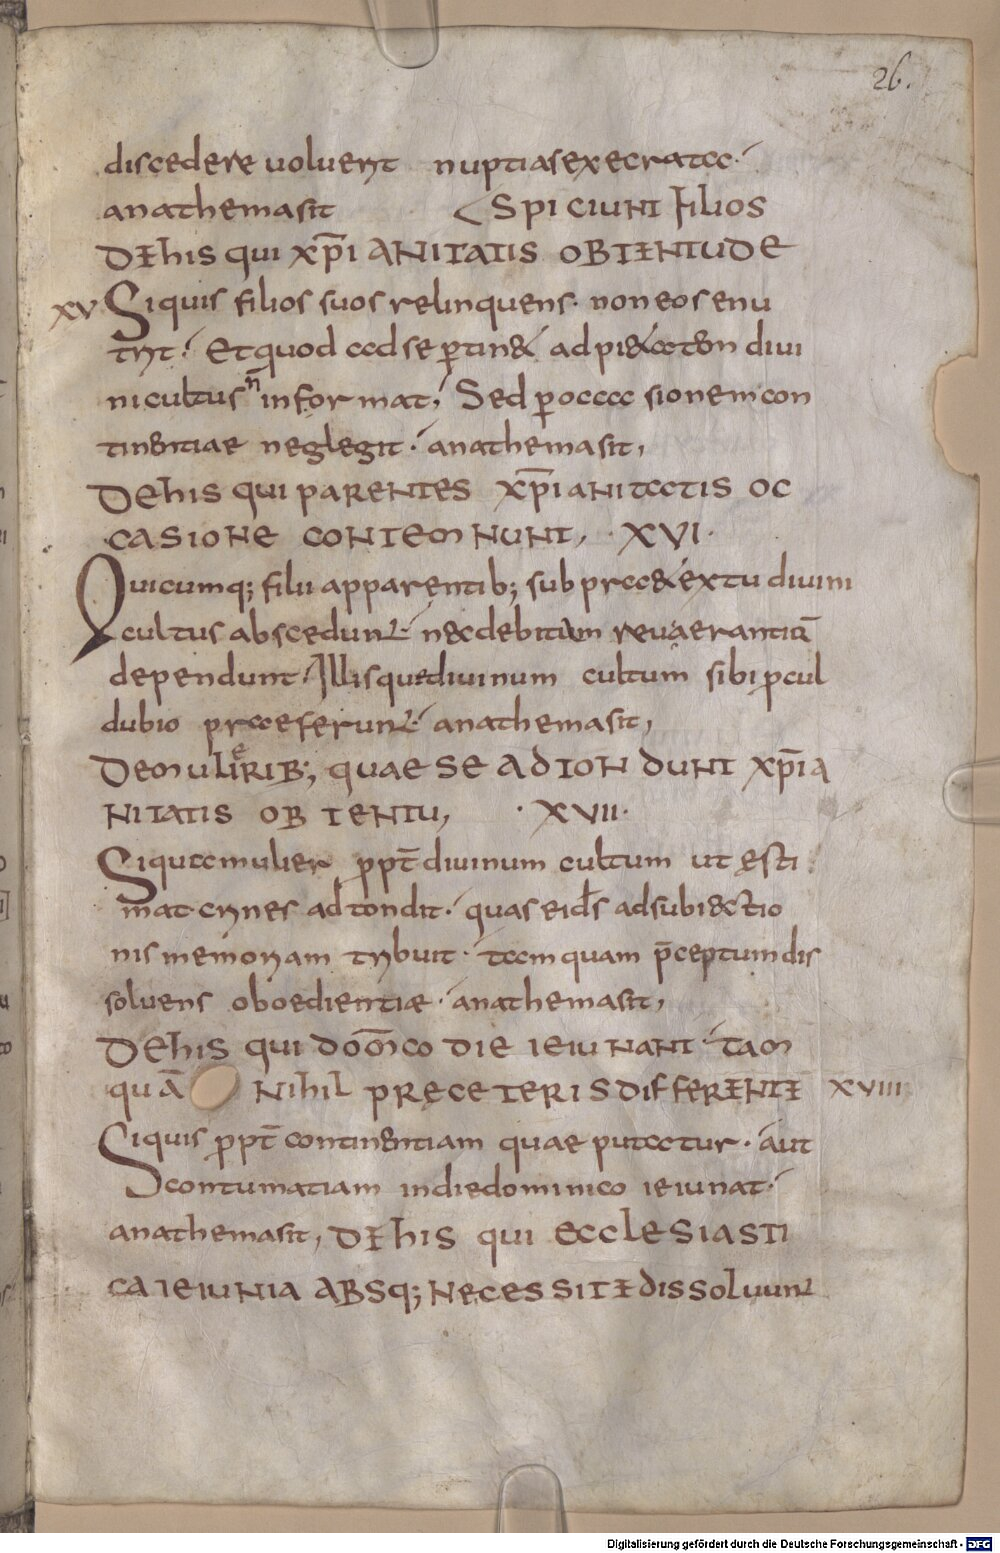 26.
discedere uoluerit nuptias execrata·
anathema sit SPICIUNT FILIOS
DE his qui xp̅IANITATIS OBTENTU DE
XV Siquis filios suos relinquens· non eos enu
trit· Et quod ad se p̱tinet ad pietaten diui
ni cultus n̅ informat, Sed p̱ occasionem con
tinentiae neglegit· anathema sit,
DE his qui PARENTES xp̅IANITATIS OC
CASIONE CONTEMNUNT, ·XVI·
Quicumq; filii a parentib; sub praetextu diuini
cultus abscedunt· nec debitam reuaerantiā
dependunt· Illisque diuinum cultum sibi p̱cul
dubio praeferunt· anathema sit,
DE MULIERIB; QUAE SE ADTONDUNT xp̅IA
NITATIS OBTENTU, ·XVII·
Siqua mulier p̱pt̅ diuinum cultum ut ęsti
mat crines adtondit· quas ei d̅s ad subiectio
nis memoriam tribuit· tamquam p̅ceptum dis
soluens oboedientiæ· anathema sit,
DE his qui DOM̅CO DIE IEIUNANT· TAM
QUĀ NIHIL PRĘ CETERIS DIFFERENTE XVIII
Siquis p̱pt̅ continentiam quae putatur· aut
contumatiam in die dominico ieiunat·
anathema sit, DE HIS QUI ECCLESIASTI
CA IEIUNIA ABSQ; NECESSITE DISSOLUUNT
Digitalisierung gefördert durch die Deutsche Forschungsgemeinschaft - DFG